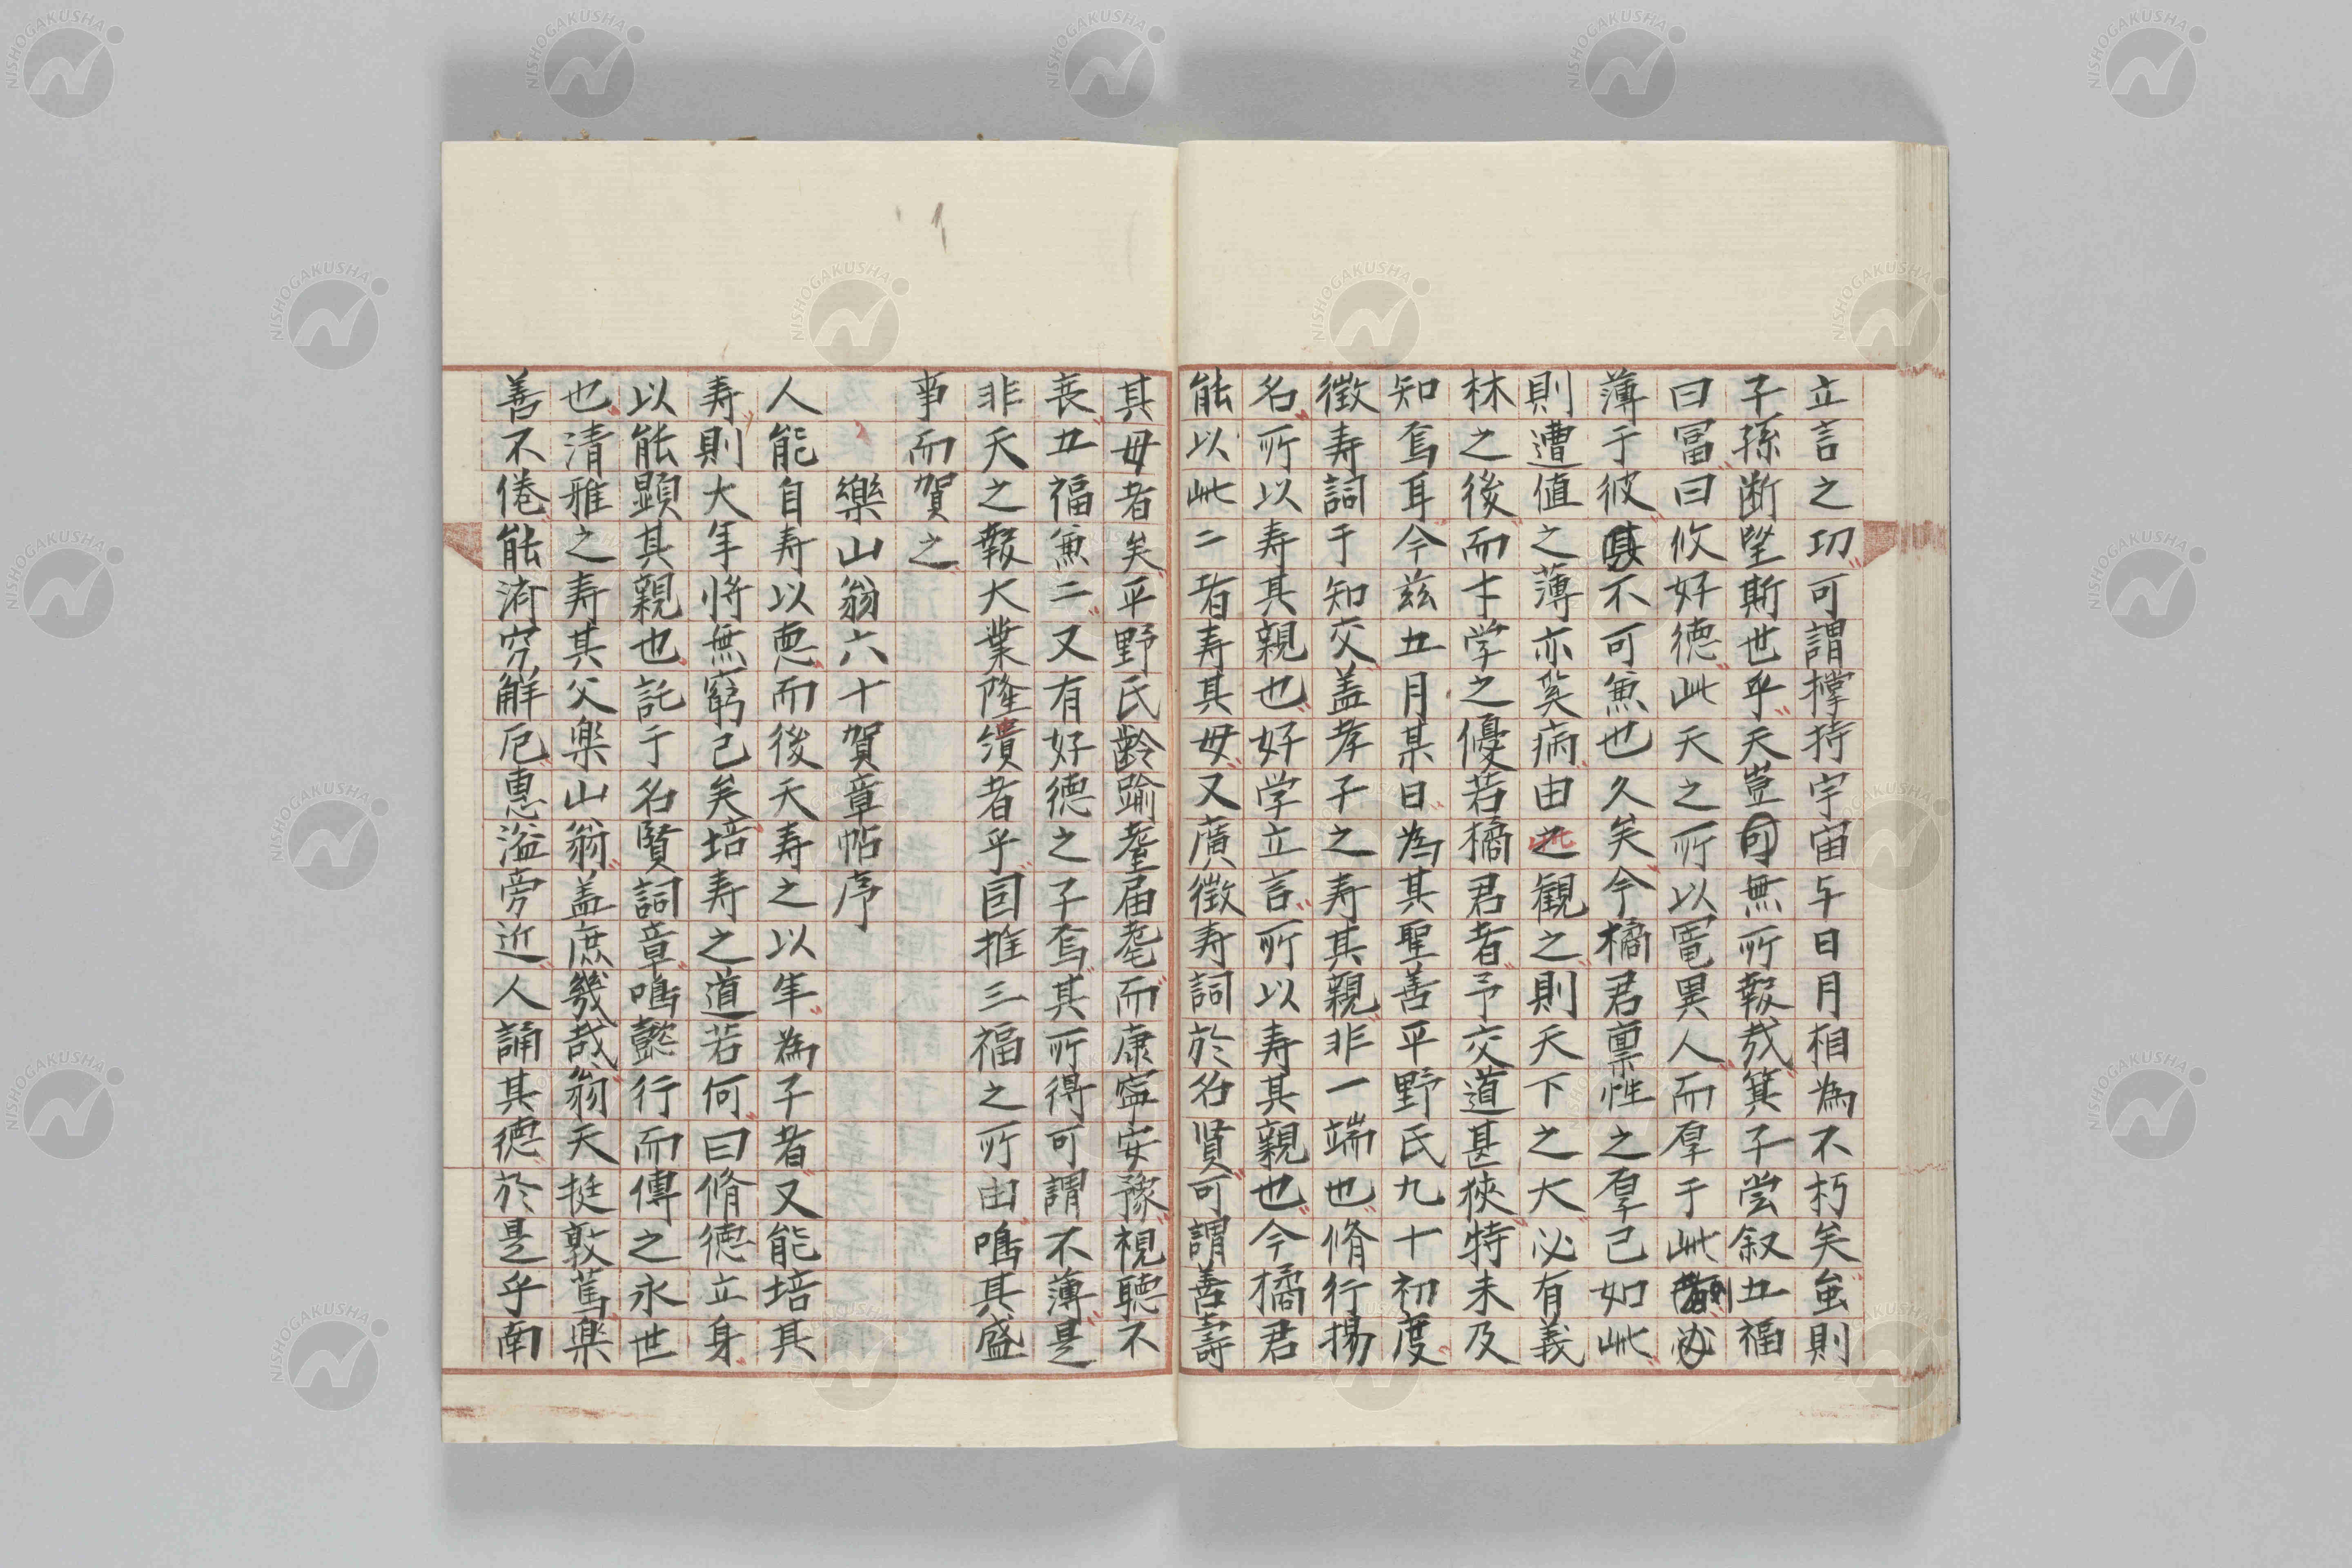 立言之功可謂撑持宇宙与日月相為不朽矣虽則
子孫断望斯世乎天豈可無所報哉箕子尝叙五福
曰冨曰攸好德此天之所以寵異人而厚于此
薄于彼不可兼也久矣今橘君禀性之厚已如此
則遭値之薄亦奚病由此観之則天下之大必有義
林之後而才学之優若橘君者予交道甚狹特未及
知焉耳今玆五月某日為其聖善平野氏九十初度
徴寿詞于知交盖孝子之寿其親非一端也脩行揚
名所以寿其親也好学立言所以寿其親也今橘君
能以此二者寿其母又廣徴寿詞於名賢可謂善壽
其母者矣平野氏齡踰耋届耄而康寧安豫視聴不
丧五福兼二又有好徳之子焉其所得可謂不薄是
非天之報大業隆績者乎囙推三福之所由鳴其盛
事而賀之
樂山翁六十賀章帖序
人能自寿以悳而後天寿之以年為子者又能培其
寿則大年将無窮已矣培寿之道若何曰脩德立身
以能顕其親也託于名賢詞章鳴懿行而傳之永世
也清雅之寿其父楽山翁盖庶幾哉翁天挺敦篤楽
善不倦能済窮解厄惠溢旁近人誦其德於是乎南
NISHOGAKUSHA